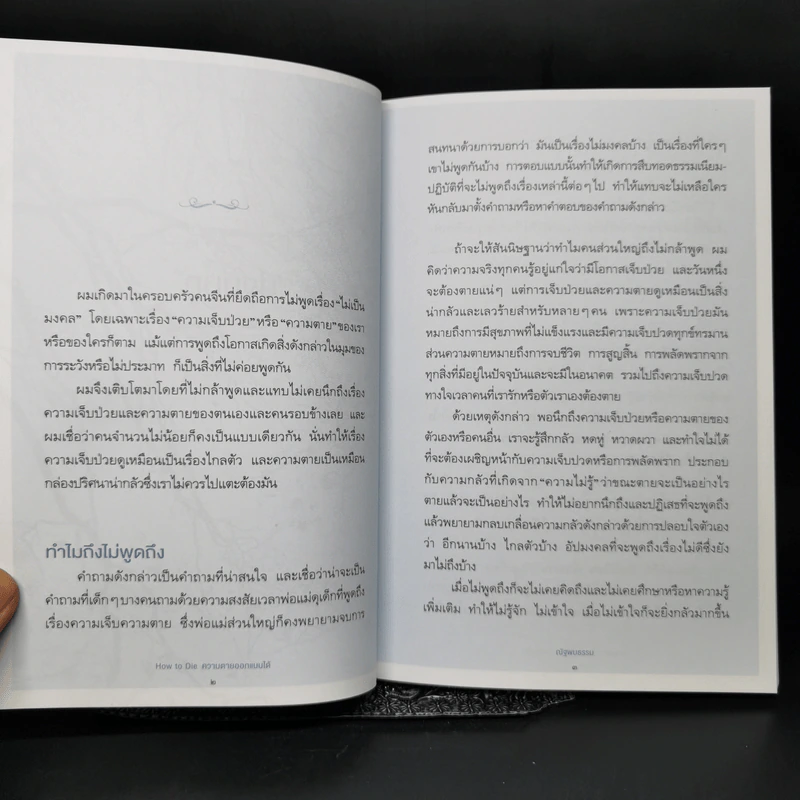 ผมเกิดมาในครอบครัวคนจีนที่ยึดถือการไม่พูดเรื่อง“ไม่เป็น
มงคล” โดยเฉพาะเรื่อง“ความเจ็บป่วย”หรือ“ความตาย”ของเรา
หรือของใครก็ตาม แม้แต่การพูดถึงโอกาสเกิดสิ่งดังกล่าวในมุมของ
การระวังหรือไม่ประมาท ก็เป็นสิ่งที่ไม่ค่อยพูดกัน
ผมจึงเติบโตมาโดยที่ไม่กล้าพูดและแทบไม่เคยนึกถึงเรื่อง
ความเจ็บป่วยและความตายของตนเองและคนรอบข้างเลย และ
ผมเชื่อว่าคนจำนวนไม่น้อยก็คงเป็นแบบเดียวกัน นั่นทำให้เรื่อง
ความเจ็บป่วยดูเหมือนเป็นเรื่องไกลตัว และความตายเป็นเหมือน
กล่องปริศนาน่ากลัวซึ่งเราไม่ควรไปแตะต้องมัน
ทำไมถึงไม่พูดถึง
คำถามดังกล่าวเป็นคำถามที่น่าสนใจ และเชื่อว่าน่าจะเป็น
คำถามที่เด็กๆบางคนถามด้วยความสงสัยเวลาพ่อแม่ดุเด็กที่พูดถึง
เรื่องความเจ็บความตาย ซึ่งพ่อแม่ส่วนใหญ่ก็คงพยายามจบการ
How to Die ความตายออกแบบได้
๒
สนทนาด้วยการบอกว่า มันเป็นเรื่องไม่มงคลบ้าง เป็นเรื่องที่ใครๆ
เขาไม่พูดกันบ้าง การตอบแบบนั้นทำให้เกิดการสืบทอดธรรมเนียม-
ปฏิบัติที่จะไม่พูดถึงเรื่องเหล่านี้ต่อๆไป ทำให้แทบจะไม่เหลือใคร
หันกลับมาตั้งคำถามหรือหาคำตอบของคำถามดังกล่าว
ถ้าจะให้สันนิษฐานว่าทำไมคนส่วนใหญ่ถึงไม่กล้าพูด ผม
คิดว่าความจริงทุกคนรู้อยู่แก่ใจว่ามีโอกาสเจ็บป่วย และวันหนึ่ง
จะต้องตายแน่ๆ แต่การเจ็บป่วยและความตายดูเหมือนเป็นสิ่ง
น่ากลัวและเลวร้ายสำหรับหลายๆคน เพราะความเจ็บป่วยมัน
หมายถึงการมีสุขภาพที่ไม่แข็งแรงและมีความเจ็บปวดทุกข์ทรมาน
ส่วนความตายหมายถึงการจบชีวิต การสูญสิ้น การพลัดพรากจาก
ทุกสิ่งที่มีอยู่ในปัจจุบันและจะมีในอนาคต รวมไปถึงความเจ็บปวด
ทางใจเวลาคนที่เรารักหรือตัวเราเองต้องตาย
ด้วยเหตุดังกล่าว พอนึกถึงความเจ็บป่วยหรือความตายของ
ตัวเองหรือคนอื่น เราจะรู้สึกกลัว หดหู่ หวาดผวา และทำใจไม่ได้
ที่จะต้องเผชิญหน้ากับความเจ็บปวดหรือการพลัดพราก ประกอบ
กับความกลัวที่เกิดจาก“ความไม่รู้”ว่าขณะตายจะเป็นอย่างไร
ตายแล้วจะเป็นอย่างไร ทำให้ไม่อยากนึกถึงและปฏิเสธที่จะพูดถึง
แล้วพยายามกลบเกลื่อนความกลัวดังกล่าวด้วยการปลอบใจตัวเอง
ว่า อีกนานบ้าง ไกลตัวบ้าง อัปมงคลที่จะพูดถึงเรื่องไม่ดีซึ่งยัง
มาไม่ถึงบ้าง
เมื่อไม่พูดถึงก็จะไม่เคยคิดถึงและไม่เคยศึกษาหรือหาความรู้
เพิ่มเติม ทำให้ไม่รู้จัก ไม่เข้าใจ เมื่อไม่เข้าใจก็จะยิ่งกลัวมากขึ้น
ณัฐพบธรรม
๓